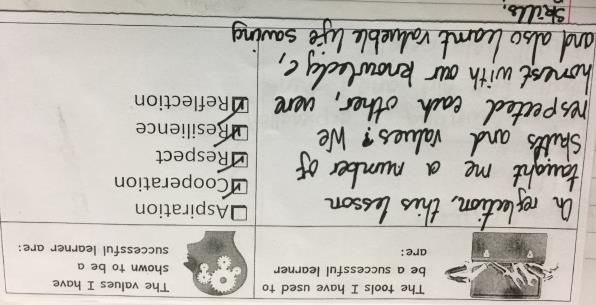 The tools I have used to
be a successful learner
are:
The values I have
shown to be a
successful learner are:
On reflection, this lesson
taught me a number of
skills and values. We
respected each other, were
honest with our knowledge,
and also learnt valueble life saving
skills.
Aspiration
Cooperation
Respect
Resilience
Reflection